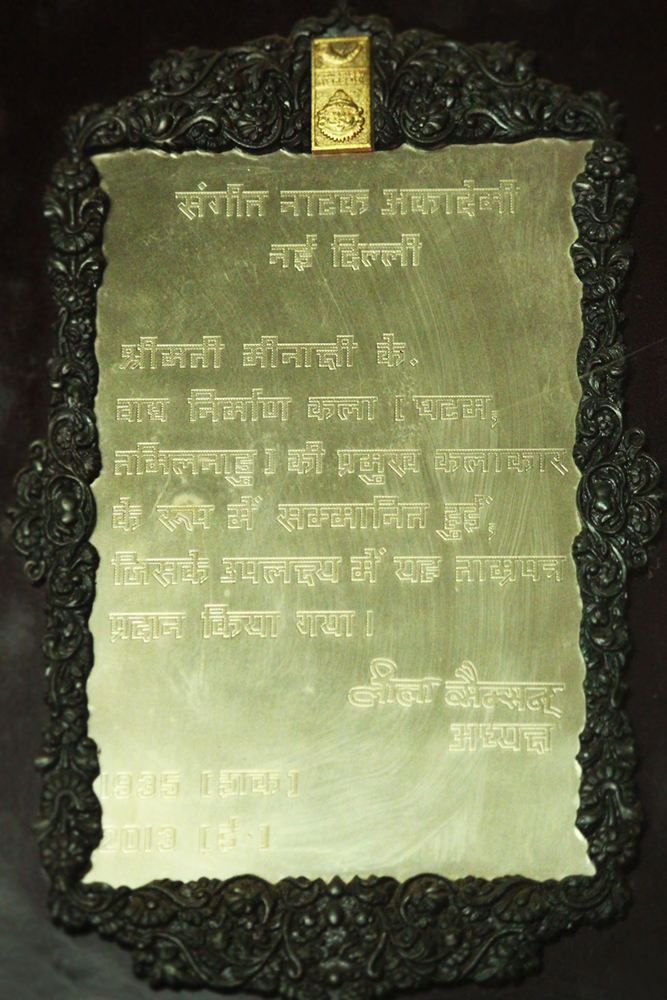 संगीत नाटक अकादेमी
नई दिल्ली
श्रीमती मीनाक्षी के.
वाद्य निर्माण कला [घटम,
तमिलनाडु] की प्रमुख कलाकार
के रूप में सम्मानित हुईं,
जिसके उपलक्ष्य में यह ताम्रपत्र
प्रदान किया गया।
लीला सैम्सन्
अध्यक्ष
1935 [शक]
2013 [ई]